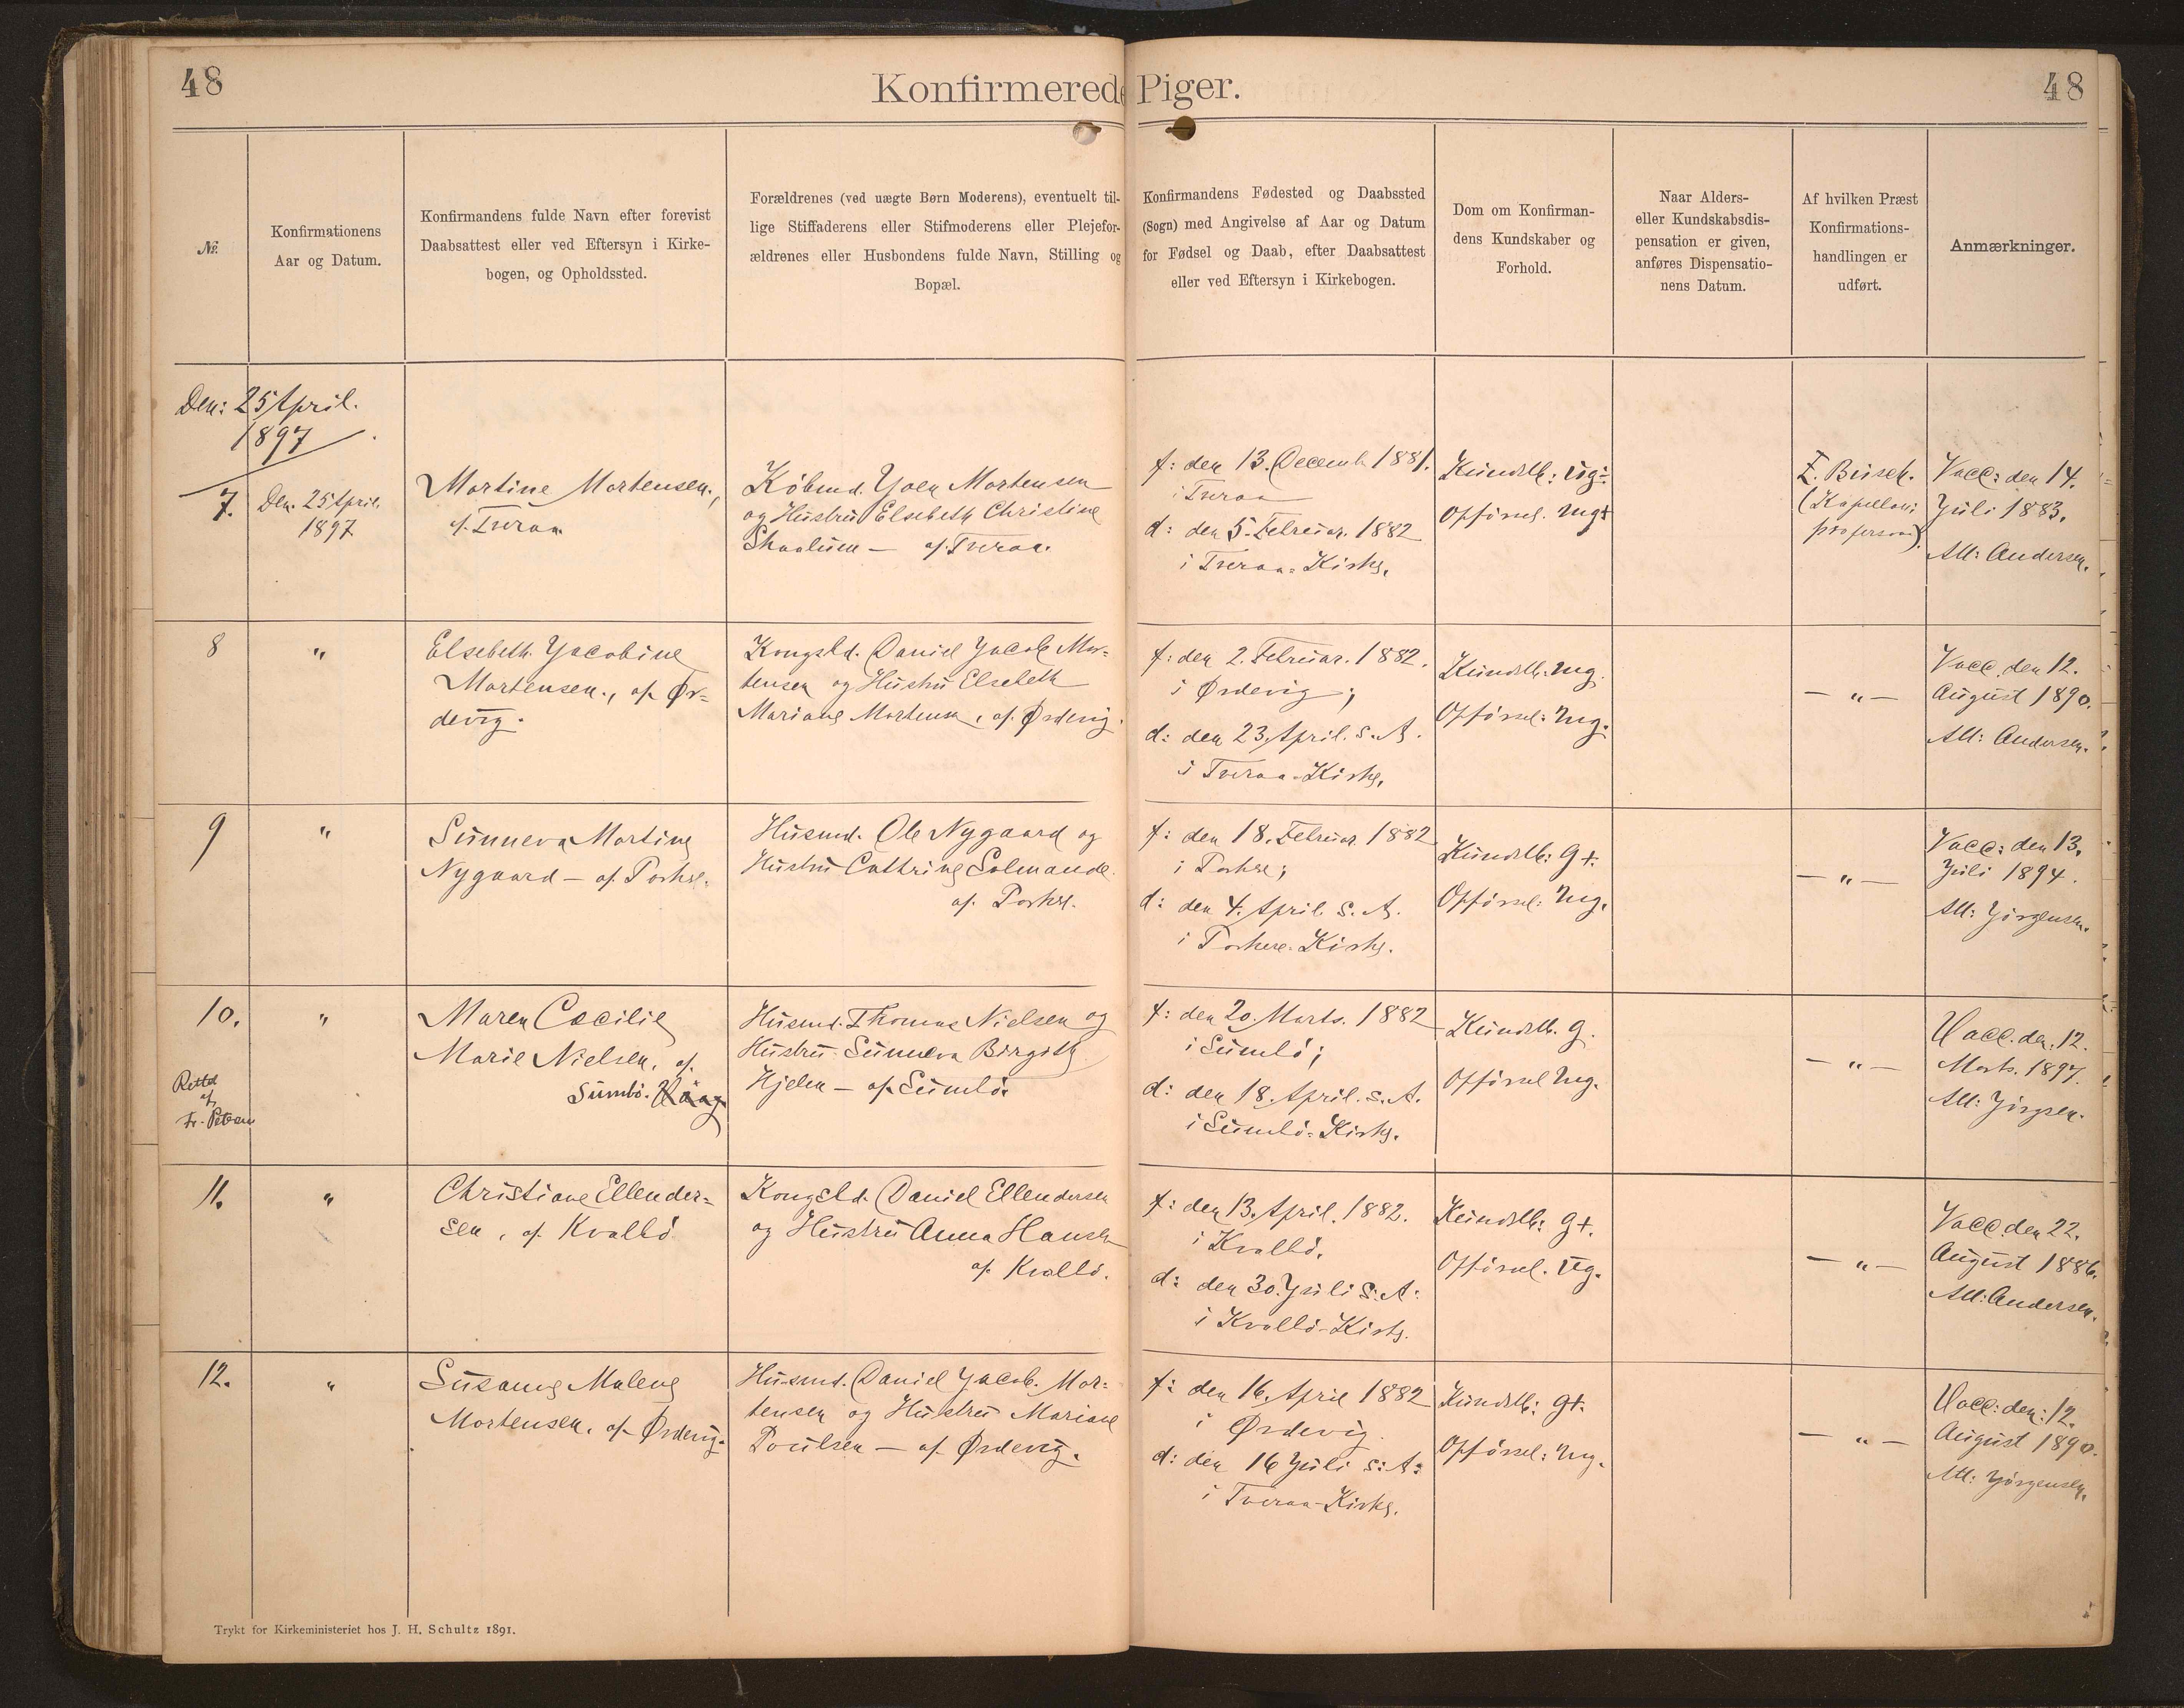 48
Konfirmerede Piger.
48
№.
Konfirmationens
Aar og Datum.
Konfirmandens fulde Navn efter forevist
Daabsattest eller ved Eftersyn i Kirke-
bogen, og Opholdssted.
Forældrenes (ved uægte Børn Moderens), eventuelt til-
lige Stiffaderens eller Stifmoderens eller Plejefor-
ældrenes eller Husbondens fulde Navn, Stilling og
Bopæl.
Konfirmandens Fødested og Daabssted
(Sogn) med Angivelse af Aar og Datum
for Fødsel og Daab, efter Daabsattest
eller ved Eftersyn i Kirkebogen.
Dom om Konfirman-
dens Kundskaber og
Forhold.
Naar Alders-
eller Kundskabsdis-
pensation er given,
anføres Dispensatio-
nens Datum.
Af hvilken Præst
Konfirmations-
handlingen er
udført.
Anmærkninger.
Den: 25 April.
1897
7.
Den. 25 April.
1897
Martine Mortensen.,
af Tveraa
Købmd. Joen Mortensen
og Hustru Elsebeth Christine
Skaalum — af Tveraa.
f: den 13. Decemb. 1881.
i Tveraa
d: den 5. Februar. 1882
i Tveraa-Kirke.
Kundsk: ug÷
Opførsel. mg+
F. Busch.
(Kapellan i
prosessono).
Vacc: den 14.
Juli 1883.
Att: Andersen.
8
"
Elsebeth Jacobine
Mortensen., af Ør=
devig.
Kongsbd. Daniel Jacob Mor=
tensen og Hustru Elsebeth
Mariane Mortensen, af Ørdevig.
f: den 2. Februar. 1882.
i Ørdevig;
d: den 23. April. s. A.
i Tveraa-Kirke.
Kundsk: mg.
Opførsel: mg.
— " —
Vacc. den 12.
August 1890.
Att: Andersen.
9
"
Sunneva Martine
Nygaard — af Porkere.
Husmd. Ole Nygaard og
Hustru Cathrine Solmunde
af Porkere.
f: den 18. Februar 1882
i Porkere;
d: den 4. April s. A.
i Porkere-Kirke.
Kundsk: g+.
Opførsel: mg.
— " —
Vacc: den 13.
Juli 1894.
Att: Jørgensen.
10.
"
Maren Cæcilie
Marie Nielsen, af
Sumbø. Vaag
Rettet
af
Fr. Petersen
Husmd. Thomas Nielsen og
Hustru Sunneva Birgith
Hjelm — af Sumbø.
f: den 20. Marts. 1882
i Sumbø;
d: den 18. April. s. A.
i Sumbø-Kirke.
Kundsk. g.
Opførsel mg.
— " —
Vacc. den: 12.
Marts. 1897.
Att: Jørgsen.
11.
"
Christiane Ellender=
sen, af Kvalbø
Kongsbd. Daniel Ellendersen
og Hustru Anna Hansen
af Kvalbø.
f: den 13. April. 1882.
i Kvalbø.
d: den 30. Juli s: A:
i Kvalbø-Kirke.
Kundsk: g+.
Opførsel. ug.
— " —
Vacc. den 22.
August 1886.
Att: Andersen.
12.
"
Susanne Malene
Mortensen. af Ørdevig.
Husmd. Daniel Jacob. Mor=
tensen og Hustru Mariane
Poulsen — af Ørdevig.
f: den 16. April 1882
i Ørdevig.
d: den 16 Juli s: A:
i Tveraa-Kirke.
Kundsk: g+.
Opførsel: mg.
— " —
Vacc: den: 12.
August 1890.
Att: Jørgensen.
Trykt for Kirkeministeriet hos J. H. Schultz 1891.